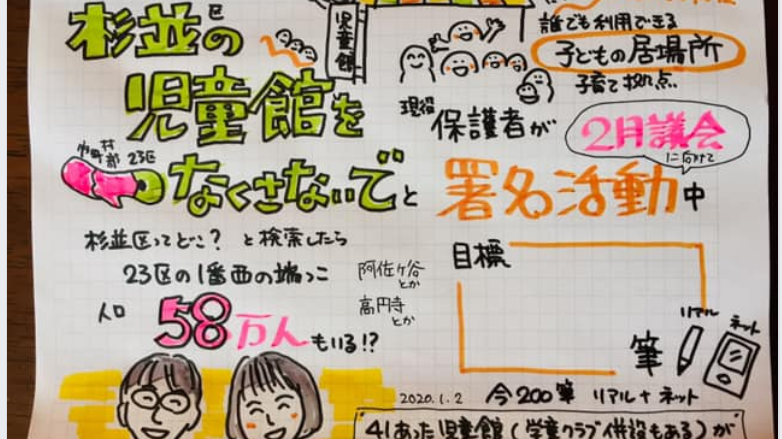 杉並区の
児童館を
市町村部
23区
なくさないで と
児童館
誰でも利用できる
子どもの居場所
子育て拠点
現役
保護者が
2月議会
に向けて
署名活動中
杉並区ってどこ? と検索したら
23区の1番西の端っこ
阿佐ヶ谷
とか
高円寺
とか
人口 58万人もいる!?
目標
筆
リアル
ネット
2020.1.2 今200筆 リアル+ネット
41あった児童館(学童クラブ併設もある)が